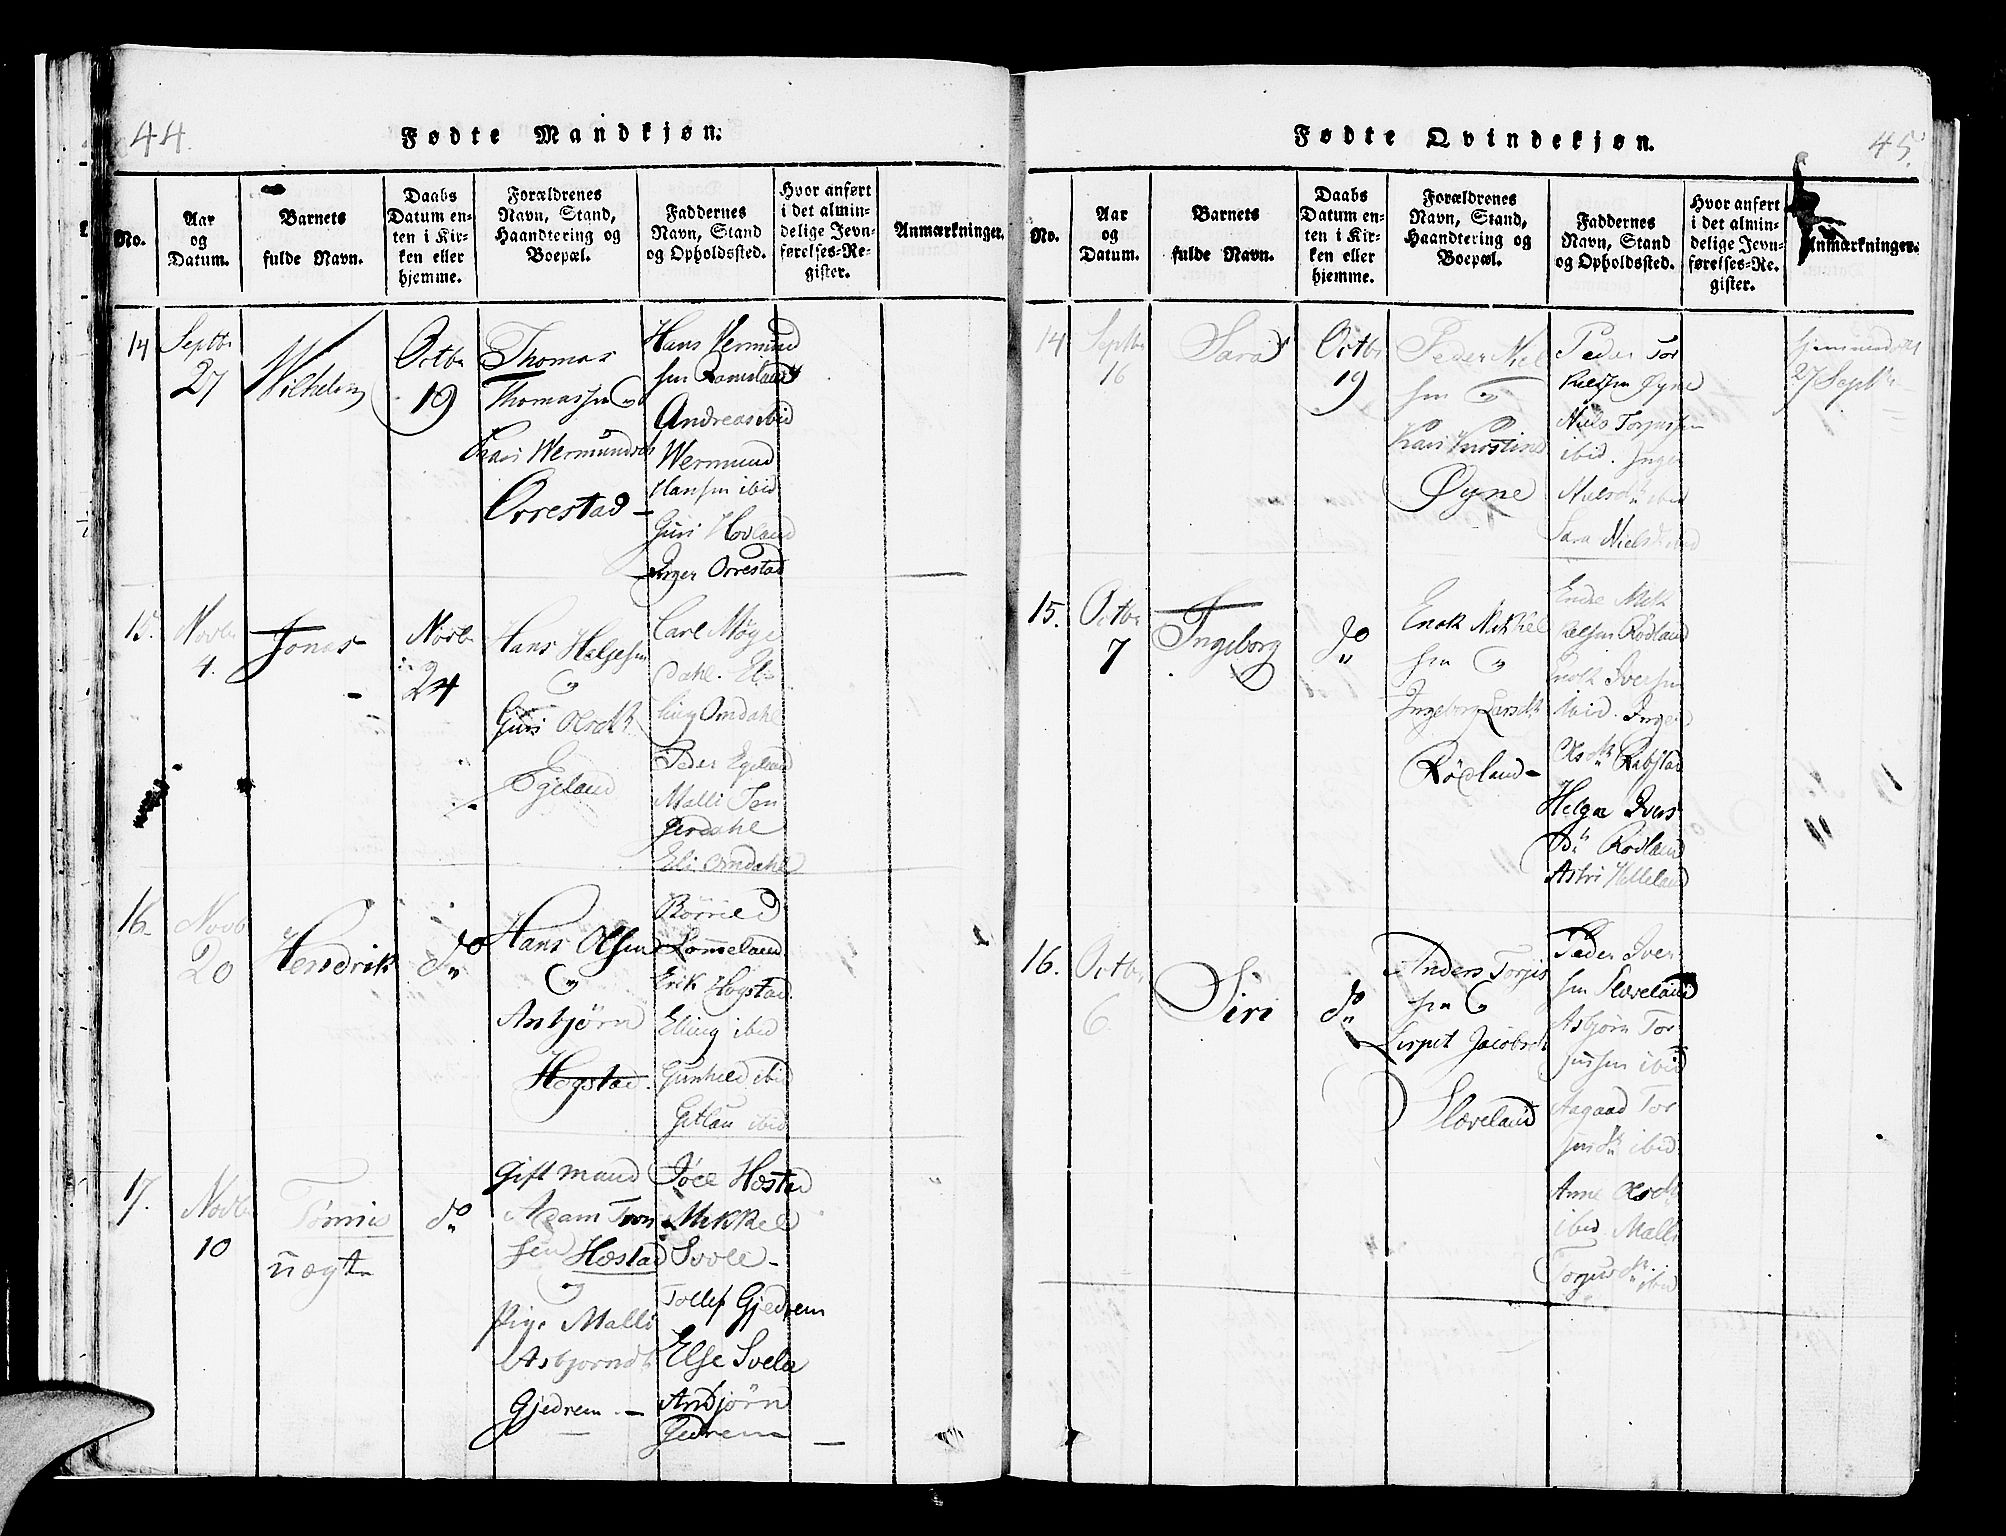 44.
Fødte Mandkjøn.
No.
Aar
og
Datum.
Barnets
fulde Navn.
Daabs
Datum en-
ten i Kir-
ken eller
hjemme.
Forældrenes
Navn, Stand,
Haandtering og
Boepæl.
Faddernes
Navn, Stand
og Opholdssted.
Hvor anført
i det almin-
delige Jevn-
førelses-Re-
gister.
Anmærkninger.
14
Septbr
27
Wilhelm
Octbr
19
Thomas
Thomassen og
Wermunds
Orrestad
Hans Vermund
sen Ramsland
Andreas ibid
Wermund
Hansen ibid
Guri Hovland
Inger Orrestad
15.
Novbr
4.
Jonas
Novbr
24
Hans Helgesen
og
Guri Olsdtr
Egeland
Carl Møge
dahl. El-
ling Omdahl
Peder Egeland
Malli Jen
gerdahl
Eli Omdahl
16.
Novb
20
Hendrik
do
Hans Olsen
og
Anbjørn
Hogstad
Borrild
Lomeland
Erik Hogstad
Elling ibid
Gunhild ibid
Gitlau ibid
17.
Novbr
10
Tønnis
uægte
do
Gift mand
Adam Tron
sen Hæstad
og
Pige Malli
Asbjorndtr
Gjedrem
Joel Hæstad
Mikkel
Svele
Tollef Gjedrem
Else Svele
Anbjørn
Gedrem
45.
Fødte Qvindekjøn.
No.
Aar
og
Datum.
Barnets
fulde Navn.
Daabs
Datum en-
ten i Kir-
ken eller
hjemme.
Forældrenes
Navn, Stand,
Haandtering og
Boepæl.
Faddernes
Navn, Stand
og Opholdssted.
Hvor anført
i det almin-
delige Jevn-
førelses-Re-
gister.
Anmærkninger.
14
Septbr
16
Sara
Octbr
19
Peder Niel
sen og
Kari
Øyne
Peder Tor
kelsen Øyne
Niels Torjussen
ibid. Inger
Nielsdtr ibid
Sara Nielsdtr ibid
hjemmedøbt
27 Septbr
15.
Octbr
7
Ingeborg
do
Enok Mikkel
sen og
Ingeborg Larsdtr
Rødland
Endre Mik
kelsen Rødland
Enok Iversen
ibid. Inger
Olsdtr Rabstad
Helga Ivers
dtr Rodland
Astri Helleland
16.
Octbr
6
Siri
do
Anders Torjus
sen og
Lispet Jacobsdtr
Slæveland
Peder Iver
sen Slæveland
Asbjørn Tor
jussen ibid
Aagaad Tor
jusdtr ibid
Anne Olsdtr
ibid. Malli
Torjusdtr ibid